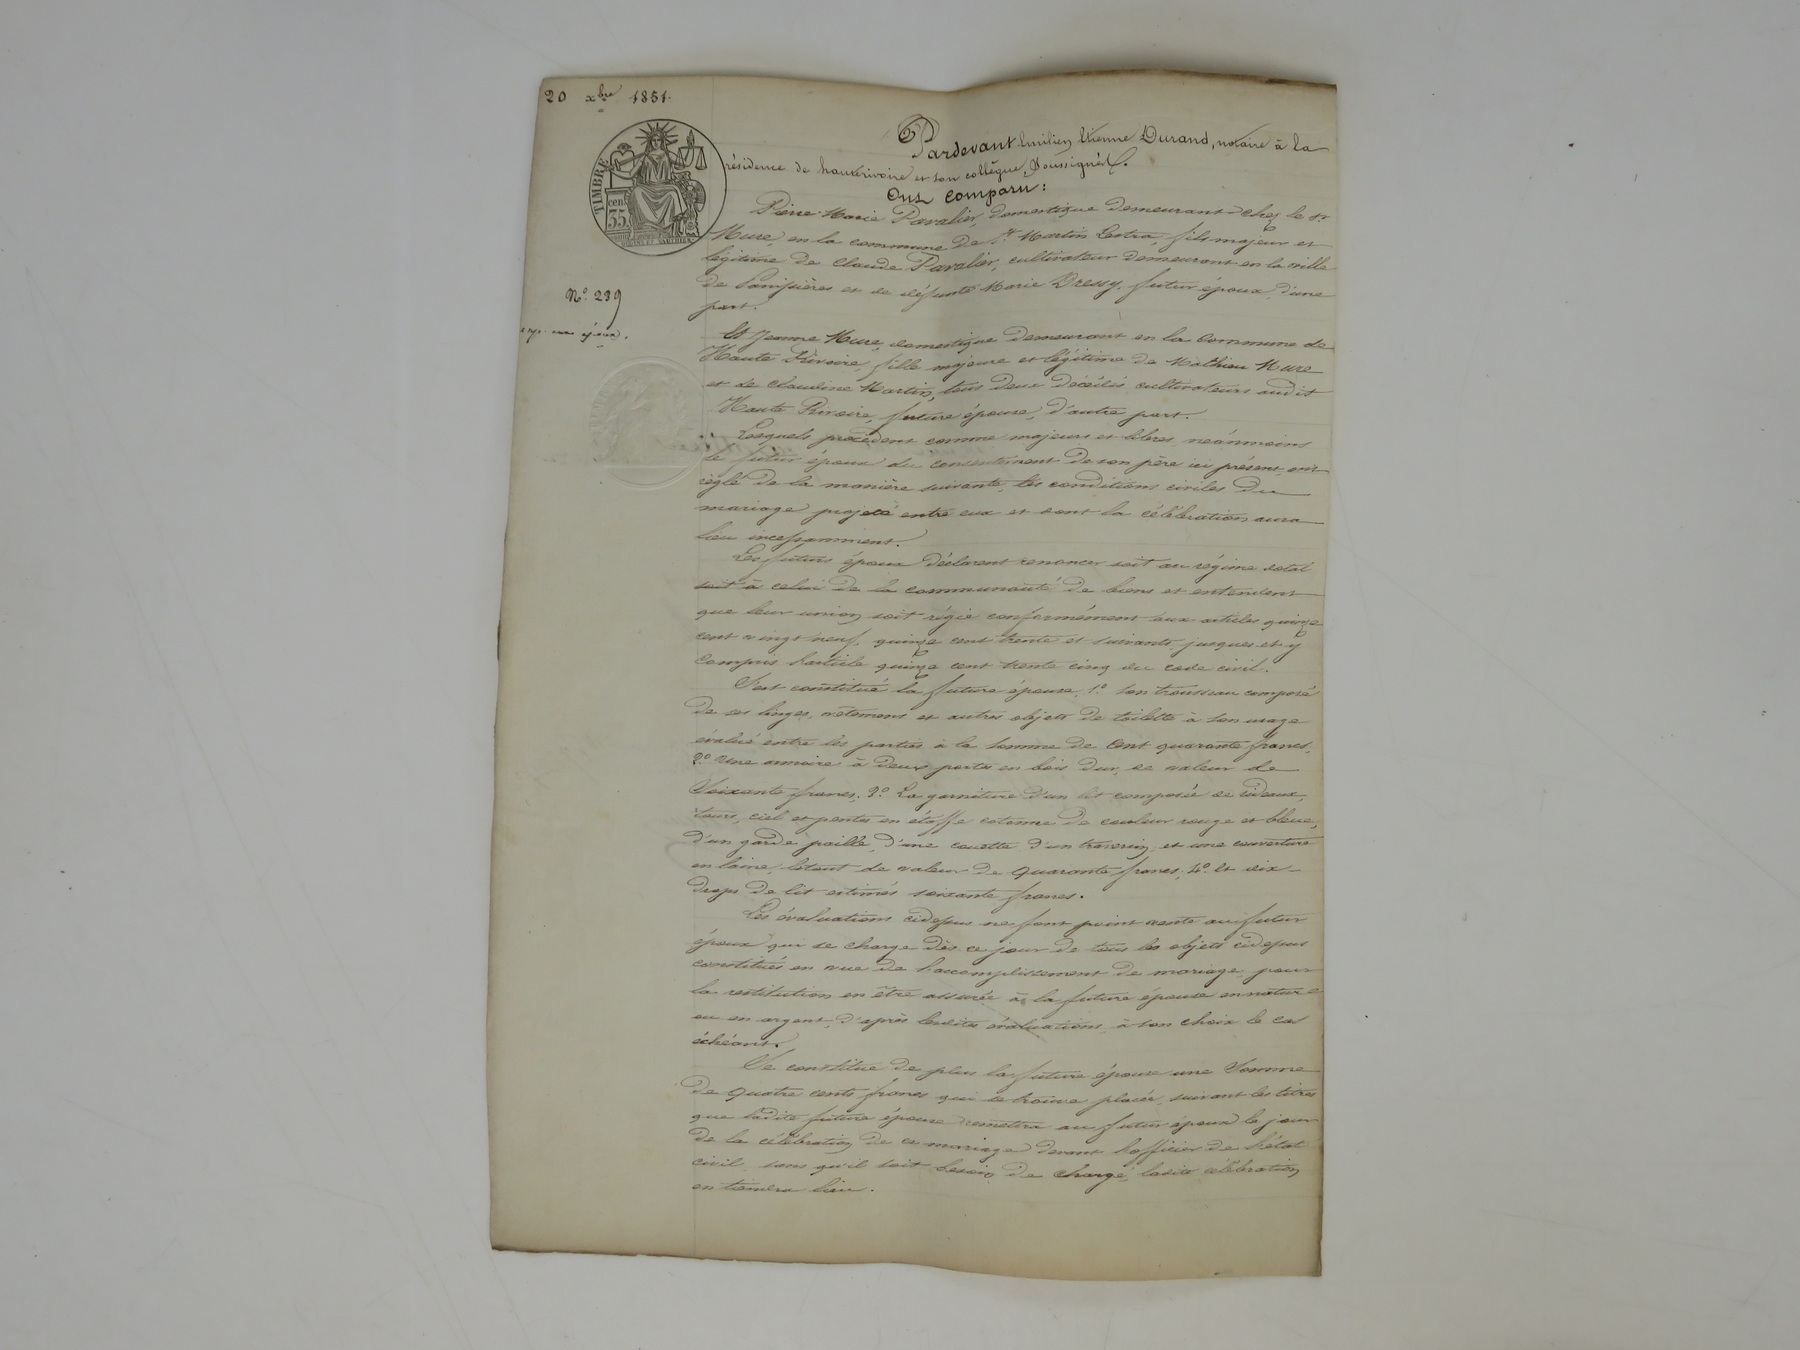 20 xbre 1851.
TIMBRE
cen. 35
Pardevant Emilien Etienne Durand, notaire à la
résidence de hauterivoire et son collègue, Soussignés.
Ont Comparu :
Pierre Marie Pavalier, domestique demeurant chez le Sr
Mure, en la commune de St Martin Lestra, fils majeur et
légitime de Claude Pavalier, cultivateur demeurant en la ville
de Panissières et de défunte Marie Bressy, futur époux, d'une
part.
N° 239
exp. aux époux.
Et Jeanne Mure, domestique demeurant en la Commune de
Haute Rivoire, fille majeure et légitime de Mathieu Mure
et de Claudine Martin, tous deux décédés cultivateurs audit
Haute Rivoire, future épouse, d'autre part.
Lesquels procédent comme majeurs et libres, néanmoins
le futur époux du consentement de son père ici présent, ont
réglé de la manière suivante, les conditions civiles du
mariage projeté entre eux et dont la célébration aura
lieu incessamment.
Les futurs époux déclarent renoncer soit au régime dotal
soit à celui de la communauté de biens et entendent
que leur union soit régie conformément aux articles quinze
cent vingt neuf, quinze cent trente et suivants jusques et y
compris l'article quinze cent trente cinq du code civil.
S'est constitué la future épouse, 1° Son trousseau composé
de ses linges, vêtemens et autres objets de toilette à son usage
évalué entre les parties à la somme de Cent quarante francs,
2° Une armoire à deux portes en bois dur, de valeur de
Soixante francs, 3° La garniture d'un lit composée de rideaux,
tours, ciel et pentes en étoffe cotonne de couleur rouge et bleue,
d'un garde paille, d'une couette d'un traversin, et une couverture
en laine, le tout de valeur de quarante francs, 4° Et six
draps de lit estimés soixante francs.
Les évaluations cidessus ne font point vente au futur
époux qui se charge dès ce jour de tous les objets cidessus
constitués en vue de l'accomplissement de mariage, pour
la restitution en être assurée à la future épouse en nature
ou en argent, d'après lesdites évaluations, à son choix le cas
échéant.
Se constitue de plus la future épouse une Somme
de quatre cents francs qui se trouve placée, suivant les titres
que ladite future épouse remettra au futur époux le jour
de la célébration de ce mariage devant l'officier de l'état
civil, sans qu'il soit besoin de charge, ladite célébration
en tiendra lieu.